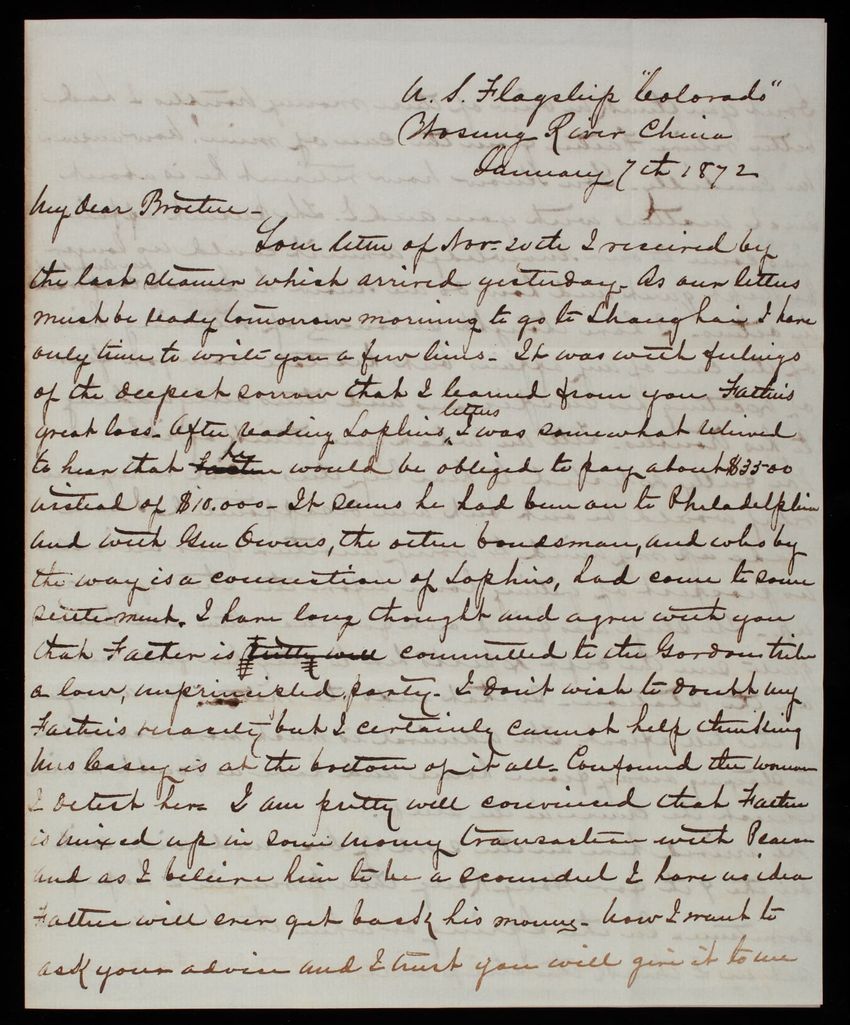 U. S. Flagship "Colorado"
Wosung River China
January 7th 1872
My Dear Brother -
Your letter of Nov. 20th I received by
the last steamer which arrived yesterday. As our letters
must be ready tomorrow morning to go to Shanghai I have
only time to write you a few lines - It was with feelings
of the deepest sorrow that I learned from you Father's
great loss. After reading Sophies letters I was somewhat relieved
to hear that he would be obliged to pay about $3500
instead of $10.000 - It seems he had been on to Philadelphia
and with Gen Owens, the other bondsman, and who by
the way is a connection of Sophies, had come to some
settlement. I have long thought and agree with you
that Father is pretty well committed to the Gordon tribe
a low, unprincipled party - I don't wish to doubt my
Father's veracity but I certainly cannot help thinking
Mrs is at the bottom of it all - Confound the woman
I detest her - I am pretty well convinced that Father
is mixed up in some money transaction with
and as I believe him to be a scoundrel I have no idea
Father will ever get back his money - Now I want to
ask your advice and I trust you will give it to me